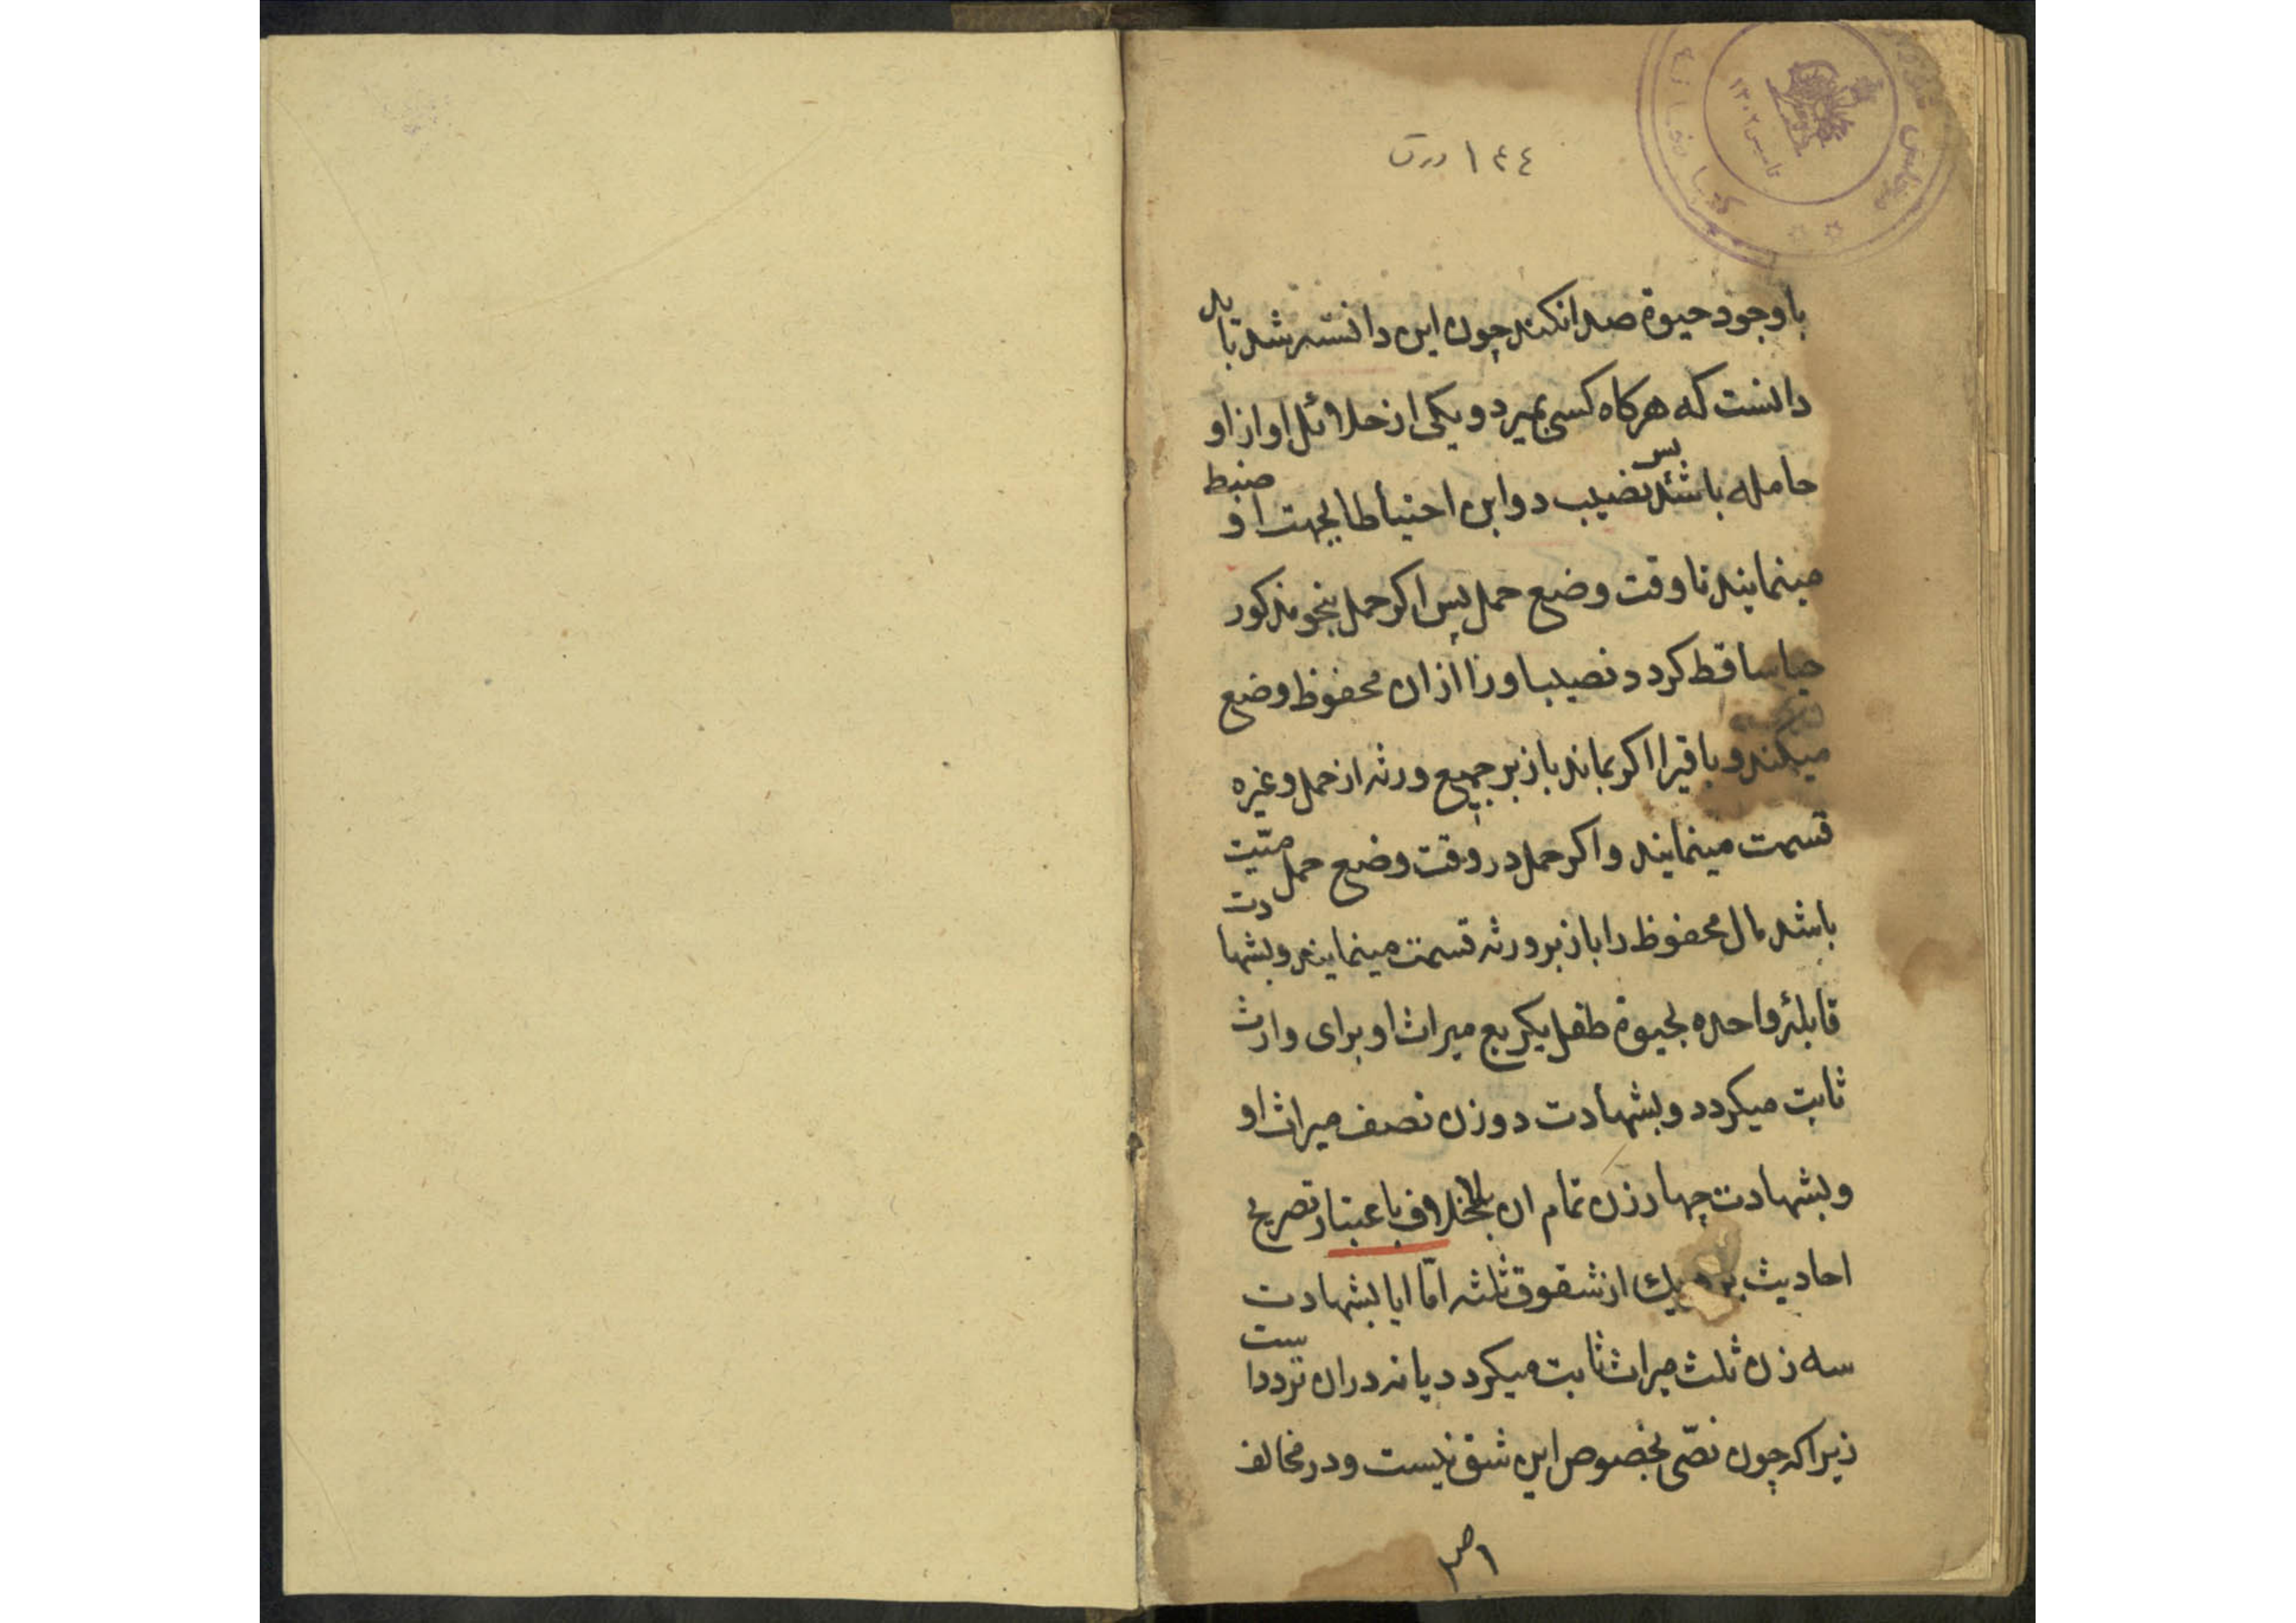 ١٤٤ ورق
تاسیس ١٣٠٢
با وجود حیوة صدا نکند چون این دانسته شد باید
دانست که هرکاه کسی بمیرد و یکی از حلائل او از او
حامله باشد پس نصیب دو ابن احتیاطا بجهت او ضبط
مینمایند تا وقت وضع حمل پس اکر حمل بنحو مذکور
حیا ساقط کردد نصیب او را از ان محفوظ وضع
میکند و باقیرا اکر بماند باز بر جمیع ورثه از حمل و غیره
قسمت مینمایند و اکر حمل در وقت وضع حمل میّت
باشد مال محفوظ را باز بر ورثه قسمت مینمایند و بشهادت
قابلهٔ واحده بحیوة طفل یکربع میراث او برای وارث
ثابت میکردد و بشهادت دو زن نصف میراث او
و بشهادت چهار زن تمام ان بلاخلاف باعتبار تصریح
احادیث بر یك از شقوق ثلثه امّا ایا بشهادت
سه زن ثلث میراث ثابت میکردد یا نه در ان ترددا ست
زیرا که چون نصّی بخصوص این شق نیست و در مخالف